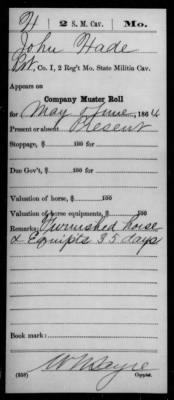 H 2 S. M. Cav. Mo.
John Hade
Pvt, Co. I, 2 Reg't Mo. State Militia Cav.
Appears on
Company Muster Roll
for May & June, 1864
Present or absent Present
Stoppage, $ 100 for
Due Gov't, $ 100 for
Valuation of horse, $ 100
Valuation of horse equipments, $ 100
Remarks: Furnished horse
& Equipts 35 days
Book mark:
(358) Copyist.